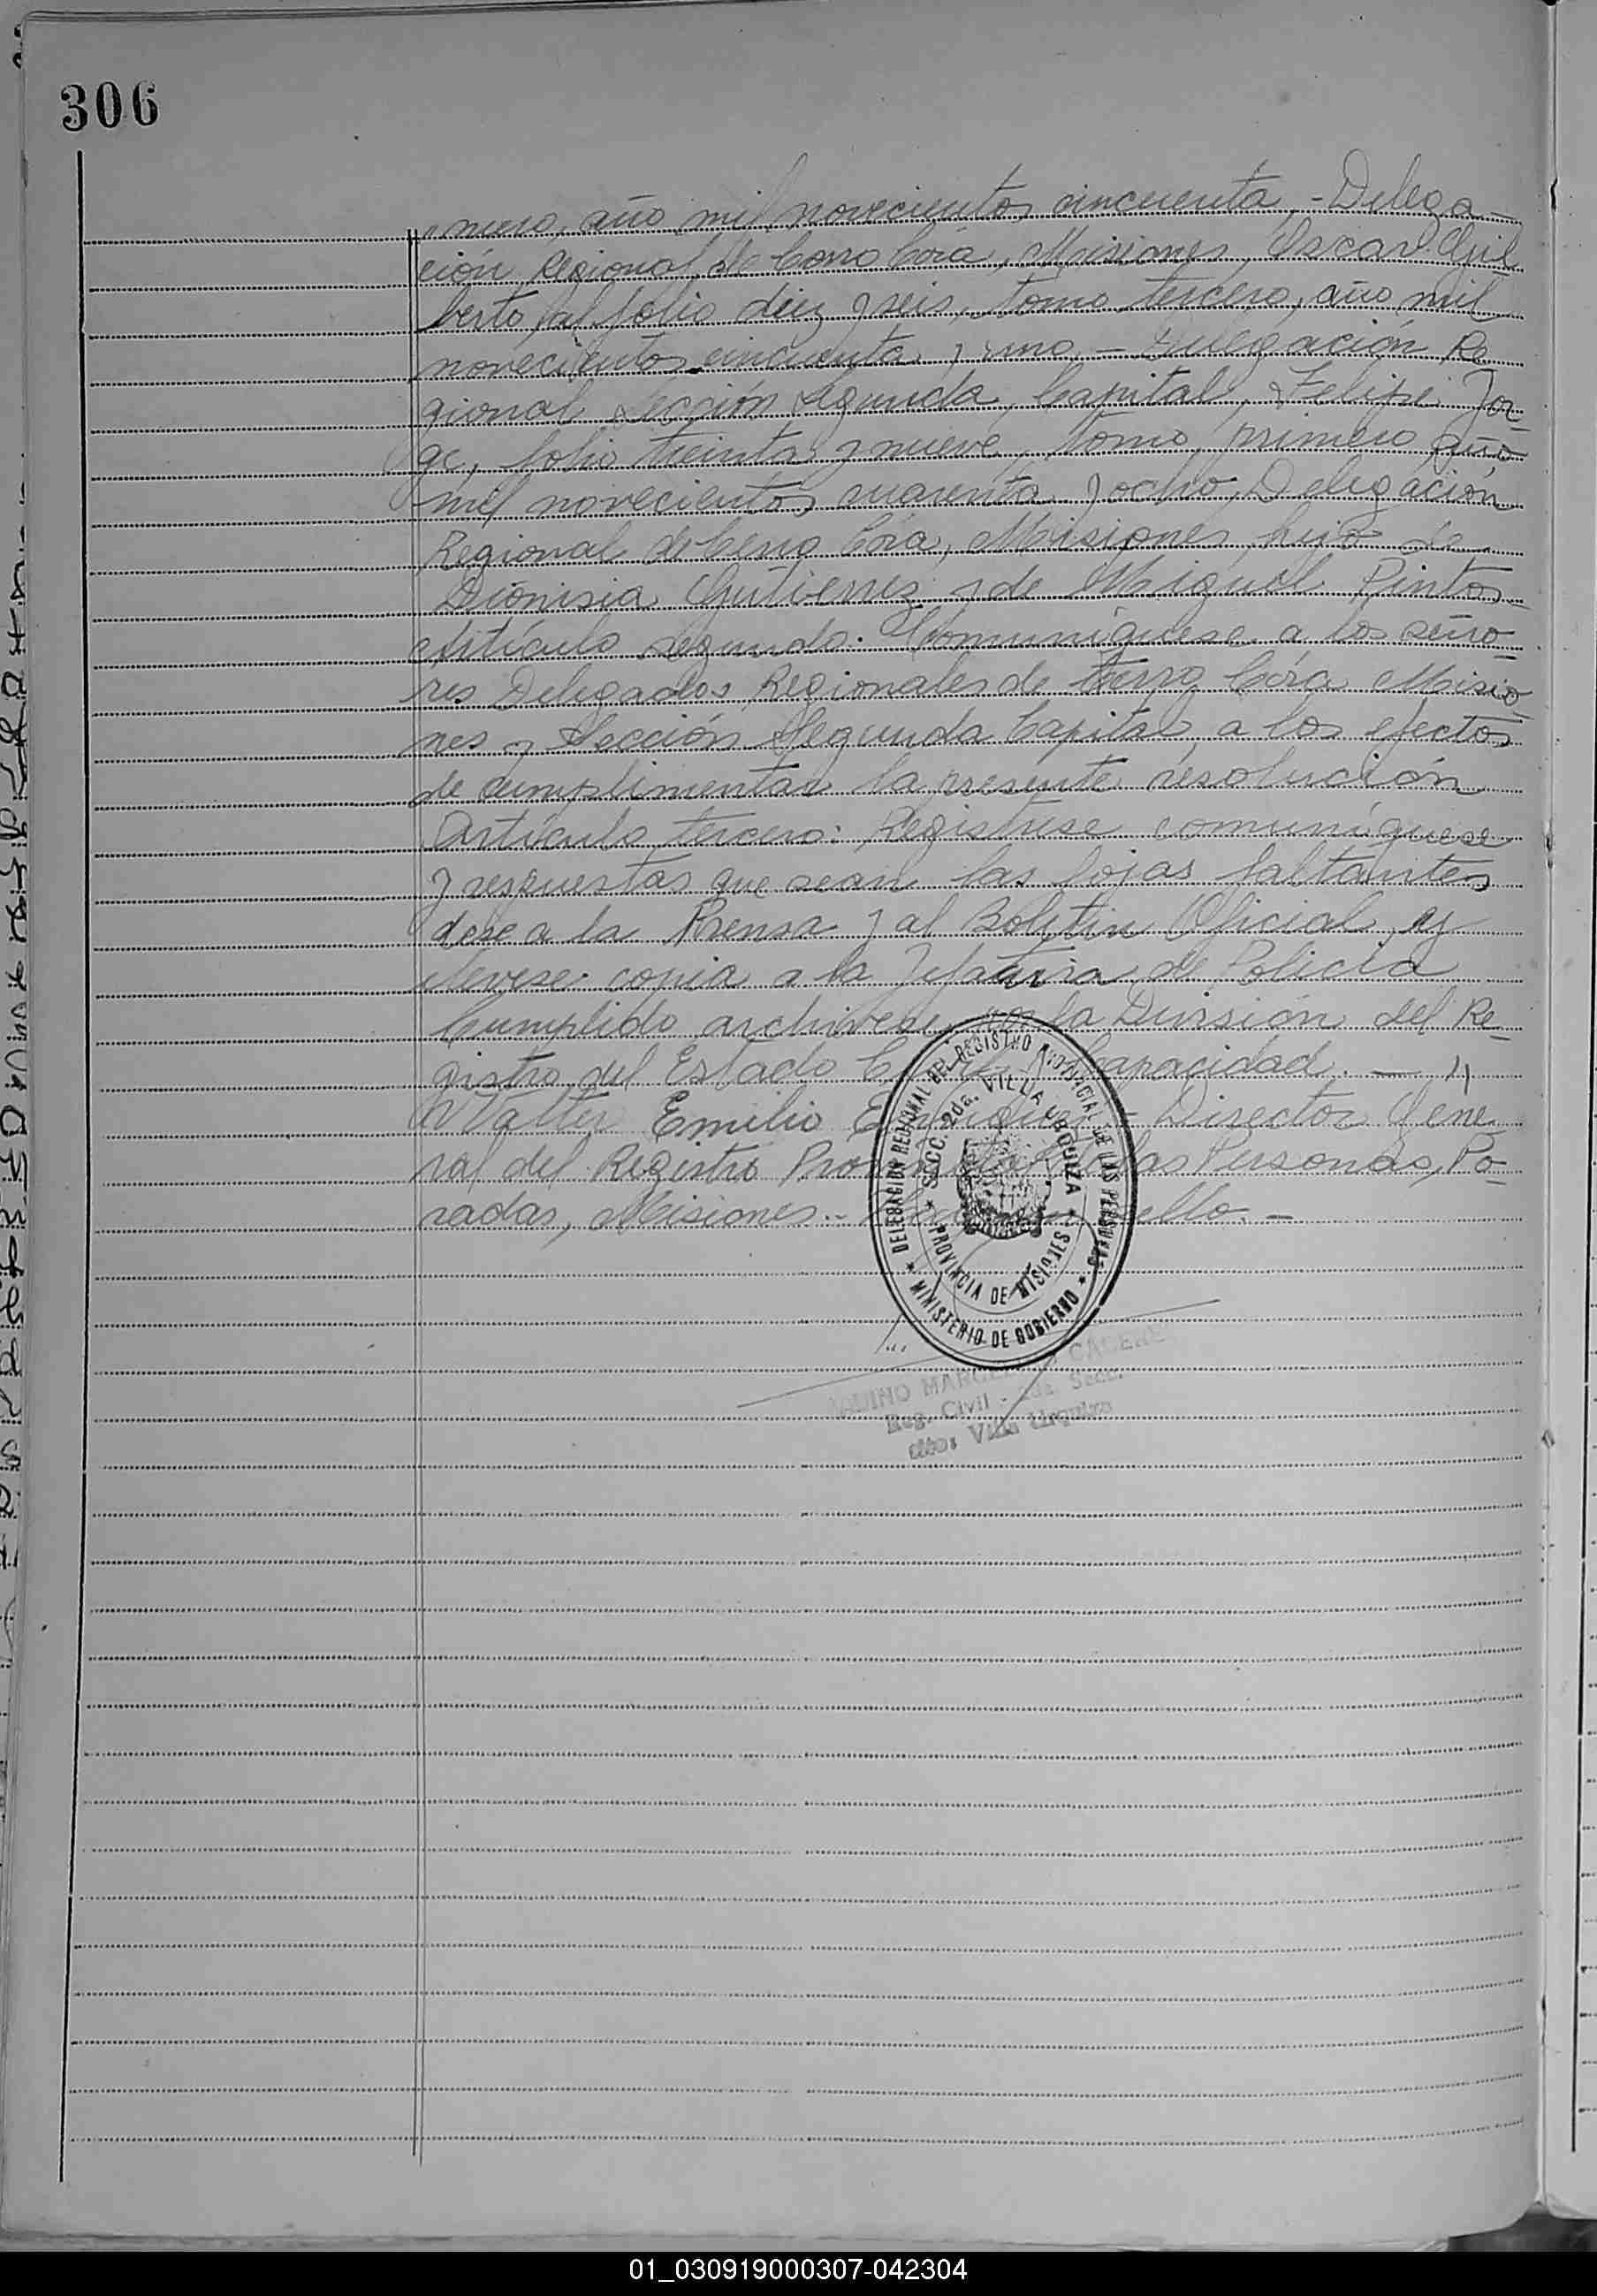 306
mero, año mil novecientos cincuenta, - Delega-
ción Regional de Cerro Corá, Misiones, Oscar Gil
berto, al folio diez y seis, tomo tercero, año mil
novecientos cincuenta y uno. - Delegación Re
gional Sección Segunda, Capital, Felipe Jor-
ge, folio treinta y nueve, tomo primero, año
mil novecientos cuarenta y ocho, Delegación
Regional de Cerro Córa, Misiones, hijo de
Dionisia Gutierrez y de Miguel Pintos
Artículo segundo: Comuníquese a los seño-
res Delegados Regionales de Cerro Córa Misio-
nes y Sección Segunda Capital, a los efectos
de cumplimentar la presente resolución
Artículo tercero: Registrese comuníquese
y respuestas que sean las fojas faltantes
dese a la Prensa y al Boletin Oficial, y
elevese copia a la Jefatura de Policia
Cumplido archivese en la División del Re-
gistro del Estado Capacidad. - "
Walter Emilio - Director Gene
ral del Registro Provincial de las Personas, Po-
sadas, Misiones. - sello. -
DELEGACION REGIONAL DEL REGISTRO PROVINCIAL DE LAS PERSONAS
SECC. 2da. VILLA URQUIZA
PROVINCIA DE MISIONES
MINISTERIO DE GOBIERNO
Reg. Civil - 2da. Secc.
Villa Urquiza
01_030919000307-042304